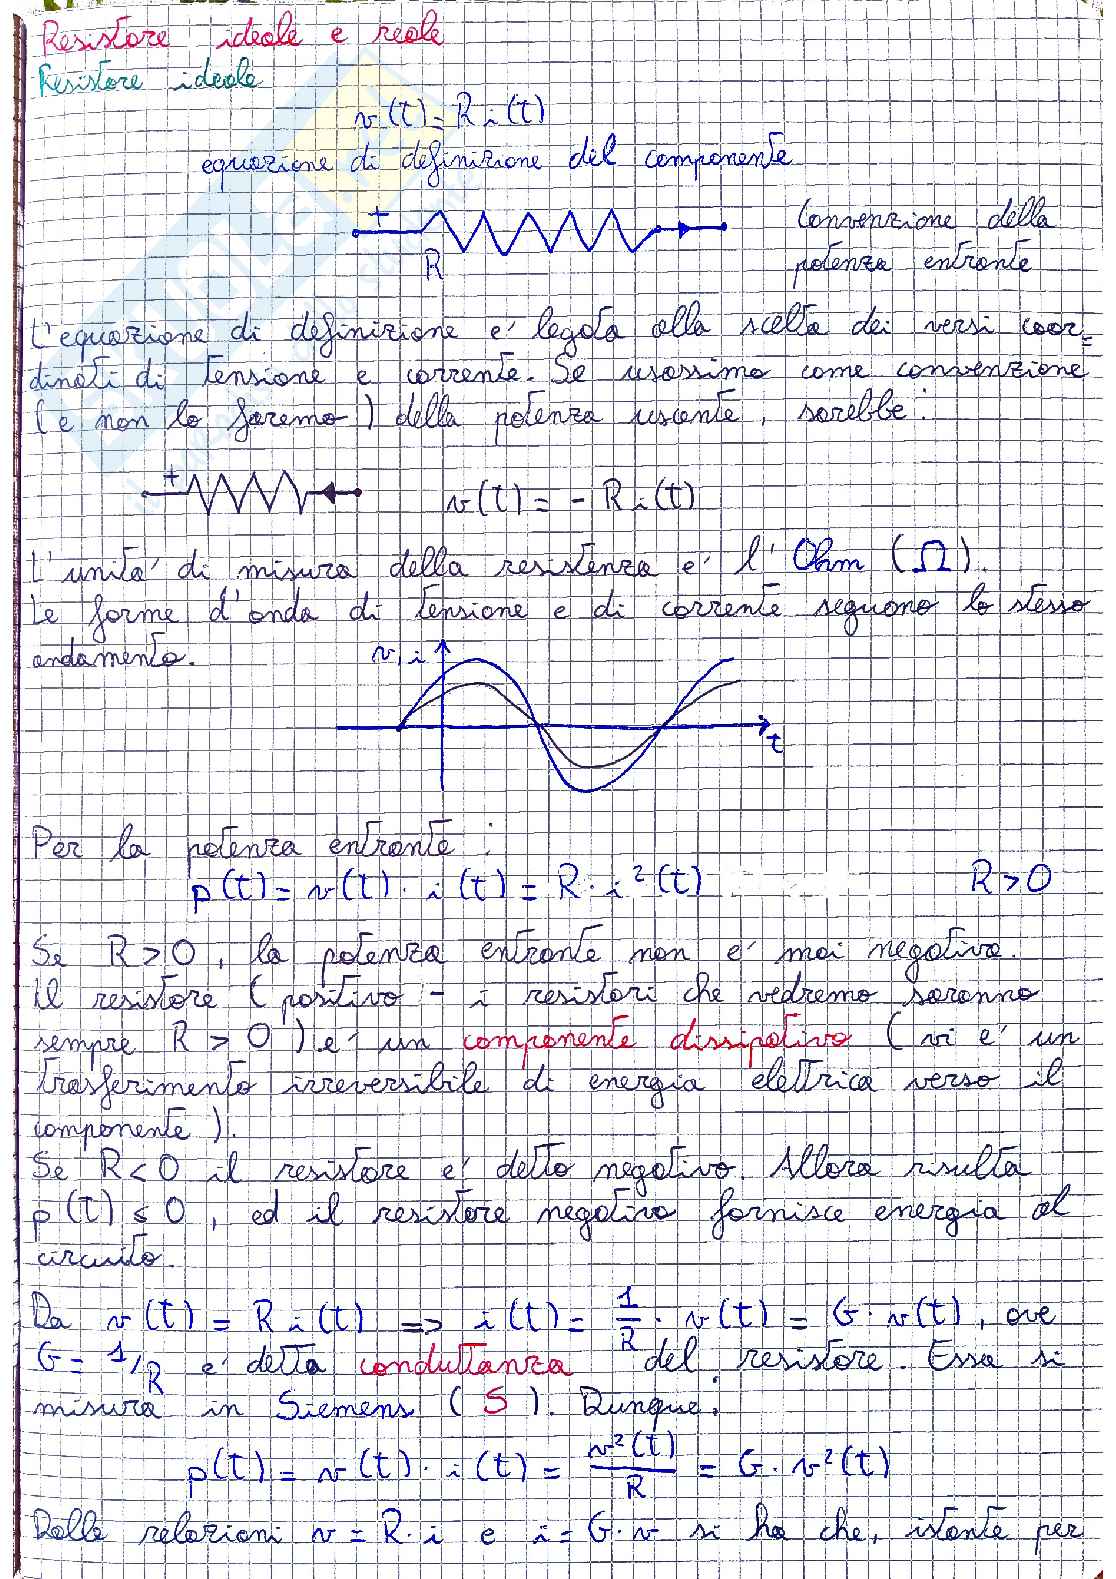 Resistore ideale e reale
Resistore ideale
v(t) = R i(t)
equazione di definizione del componente
+
R
Convenzione della
potenza entrante
L'equazione di definizione e' legata alla scelta dei versi coor=
dinati di tensione e corrente. Se usassimo come convenzione
(e non lo faremo) della potenza uscente, sarebbe:
+
v(t) = - R i(t)
L'unita' di misura della resistenza e' l'Ohm (Ω).
Le forme d'onda di tensione e di corrente seguono lo stesso
andamento.
v, i
t
Per la potenza entrante:
p(t) = v(t) · i(t) = R · i²(t) R > 0
Se R > 0, la potenza entrante non e' mai negativa.
Il resistore (positivo - i resistori che vedremo saranno
sempre R > 0) e' un componente dissipativo (vi e' un
trasferimento irreversibile di energia elettrica verso il
componente).
Se R < 0 il resistore e' detto negativo. Allora risulta
p(t) ≤ 0, ed il resistore negativo fornisce energia al
circuito.
Da v(t) = R i(t) => i(t) = 1/R · v(t) = G · v(t), ove
G = 1/R e' detta conduttanza del resistore. Essa si
misura in Siemens (S). Dunque:
p(t) = v(t) · i(t) = v²(t)/R = G · v²(t)
Dalle relazioni v = R · i e i = G · v si ha che, istante per